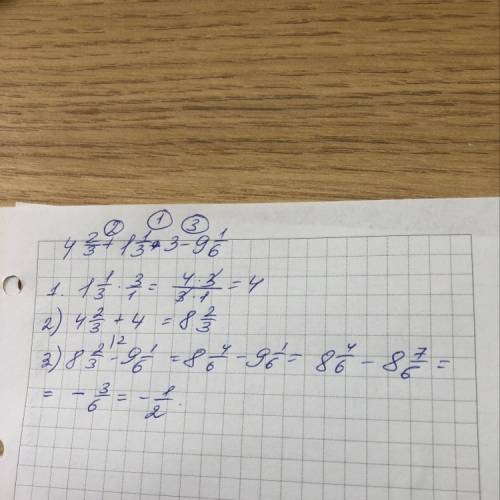 ② ① ③
4 2/3 + 1 1/3 · 3 - 9 1/6
1. 1 1/3 · 3/1 = 4·3/3·1 = 4
2) 4 2/3 + 4 = 8 2/3
3) 8 2/3 |2 - 9 1/6 = 8 4/6 - 9 1/6 = 8 4/6 - 8 7/6 =
= - 3/6 = - 1/2.